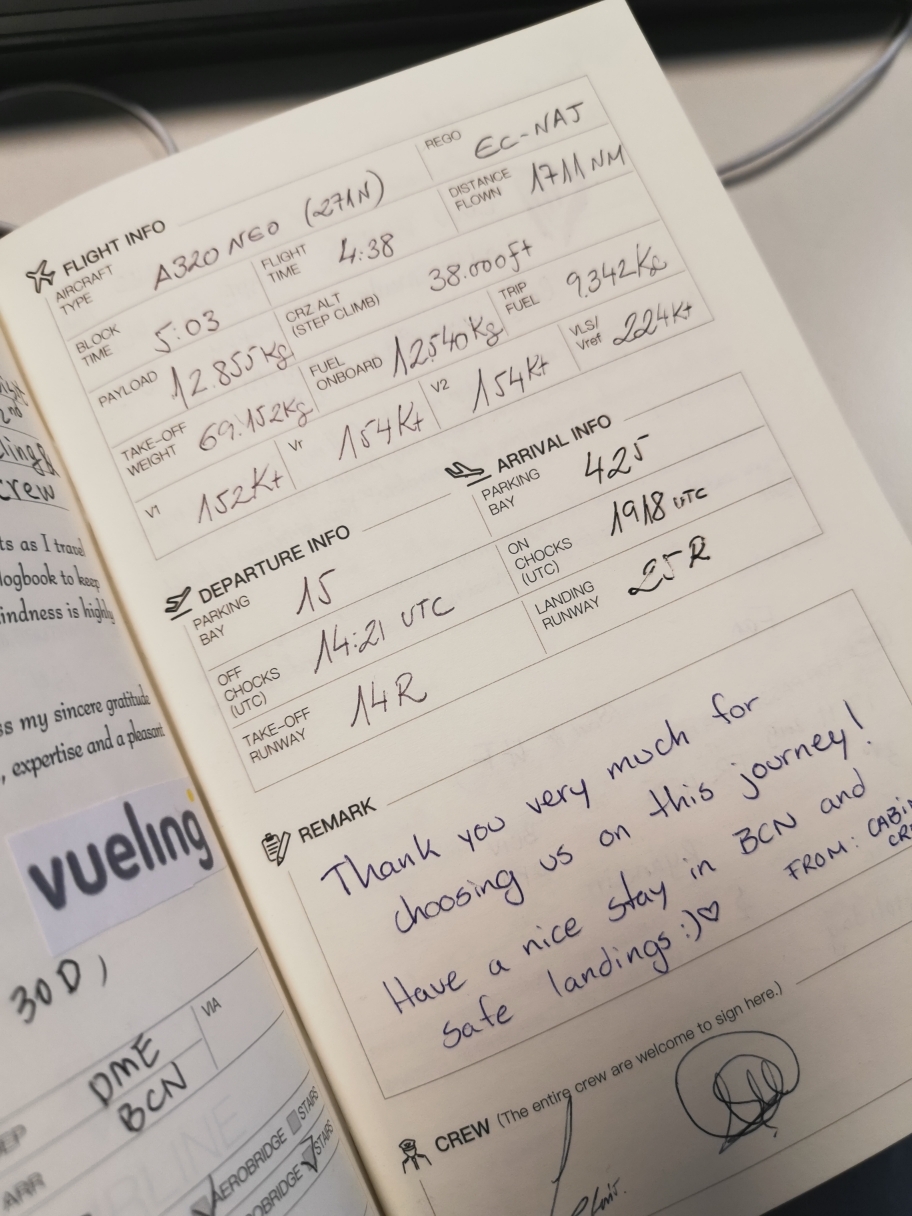 FLIGHT INFO
AIRCRAFT TYPE A320 NEO (271N) REGO EC-NAJ
BLOCK TIME 5:03 FLIGHT TIME 4:38 DISTANCE FLOWN 1711 NM
PAYLOAD 12.855kg CRZ ALT (STEP CLIMB) 38.000ft
TAKE-OFF WEIGHT 69.152Kg FUEL ONBOARD 12540Kg TRIP FUEL 9.342Kg
V1 152Kt Vr 154Kt V2 154Kt VLS/Vref 224Kt
DEPARTURE INFO
PARKING BAY 15
OFF CHOCKS (UTC) 14:21 UTC
TAKE-OFF RUNWAY 14R
ARRIVAL INFO
PARKING BAY 425
ON CHOCKS (UTC) 1918 UTC
LANDING RUNWAY 25R
REMARK
Thank you very much for
choosing us on this journey!
Have a nice stay in BCN and
safe landings :)♡
FROM: CABIN
CRE
CREW (The entire crew are welcome to sign here.)
2nd
Crew
ts as I travel
logbook to keep
indness is highly
ss my sincere gratitude
, expertise and a pleasant
vueling
30D)
EP DME VIA
ARR BCN
AEROBRIDGE STAIRS
OBRIDGE STAIRS